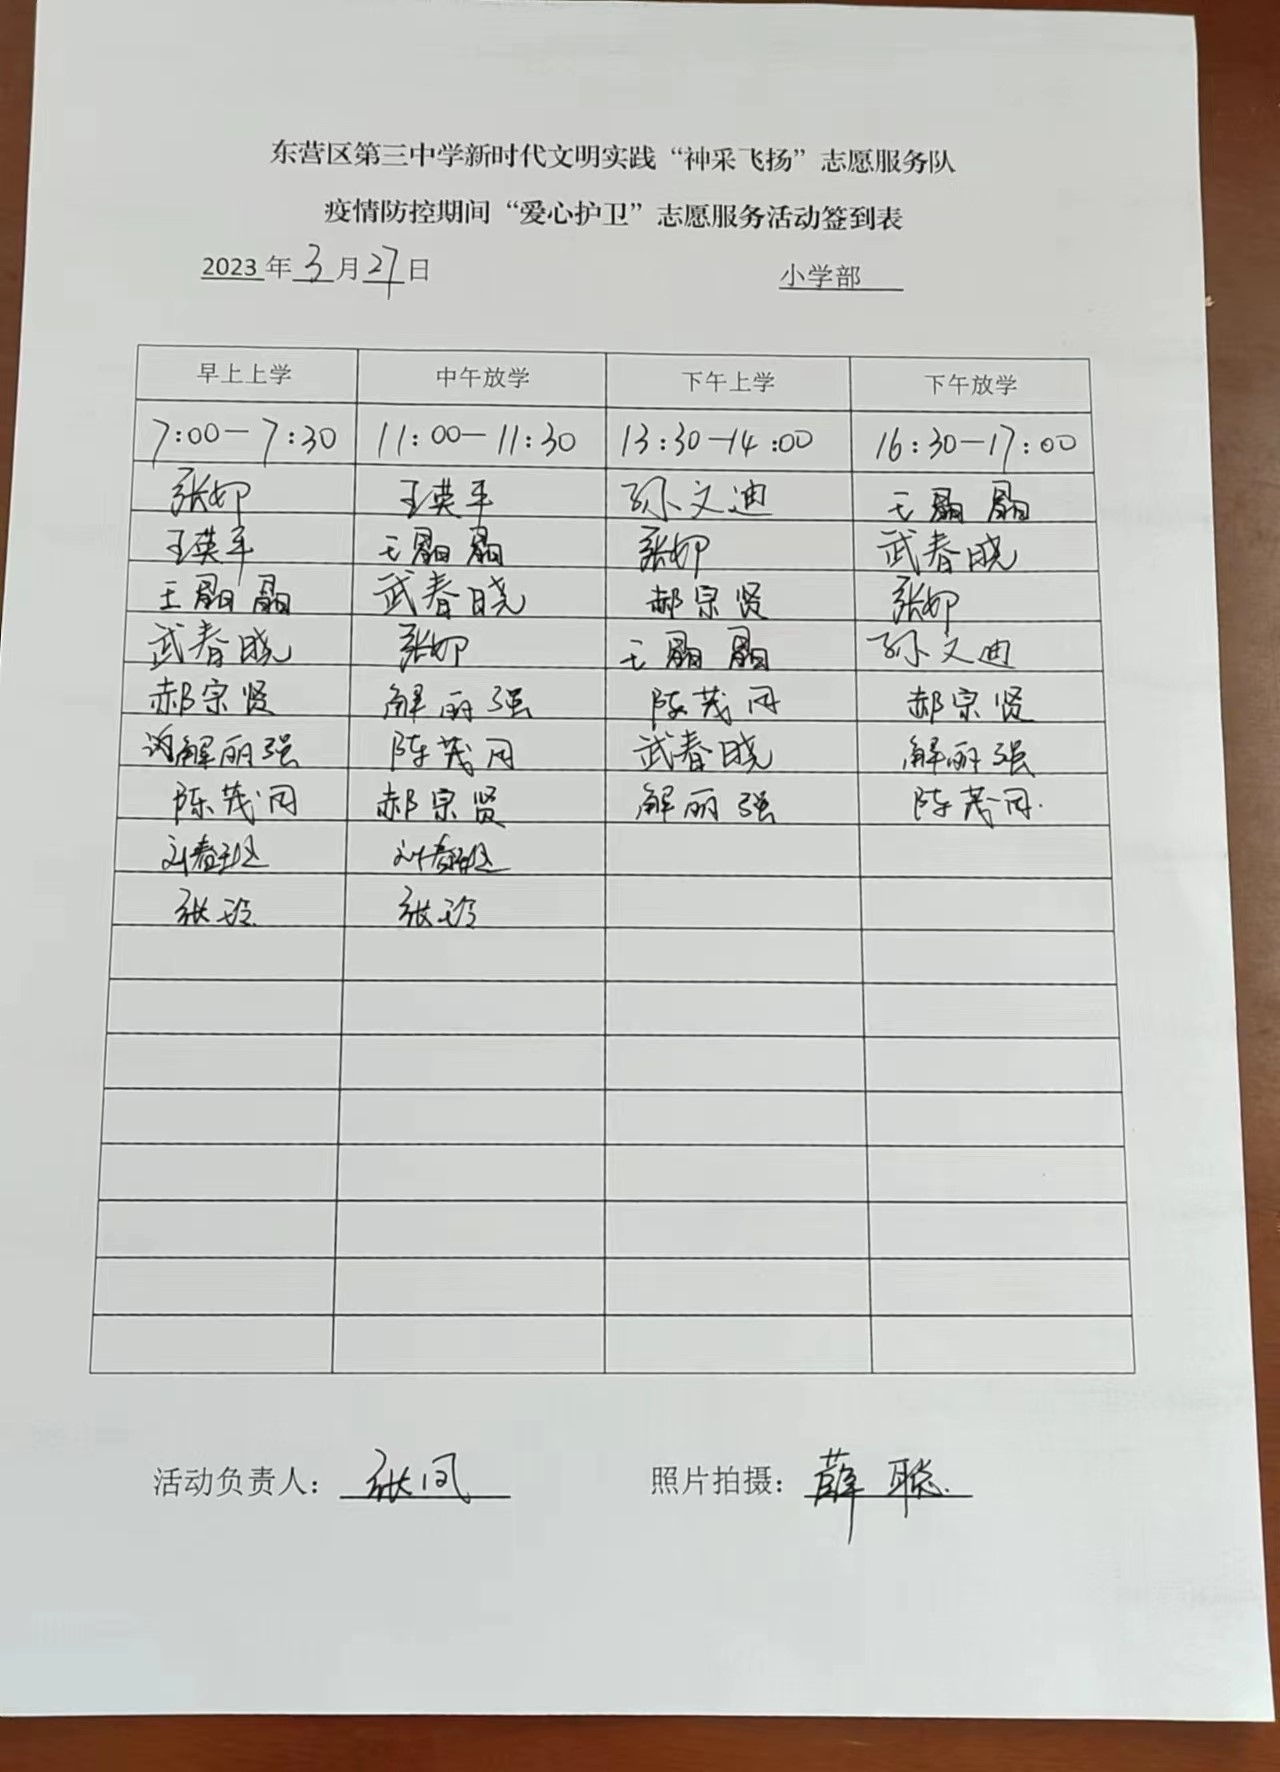 东营区第三中学新时代文明实践“神采飞扬”志愿服务队
疫情防控期间“爱心护卫”志愿服务活动签到表
2023年3月27日 小学部
早上上学 中午放学 下午上学 下午放学
7:00-7:30 11:00-11:30 13:30-14:00 16:30-17:00
张 王英平 孙文迪 王晶晶
王英平 王晶晶 张 武春晓
王晶晶 武春晓 郝宗贤 张
武春晓 张 王晶晶 孙文迪
郝宗贤 解丽强 陈茂同 郝宗贤
解丽强 陈茂同 武春晓 解丽强
陈茂同 郝宗贤 解丽强 陈茂同
刘春 刘春
张玲 张玲
活动负责人：张凤 照片拍摄：薛聪